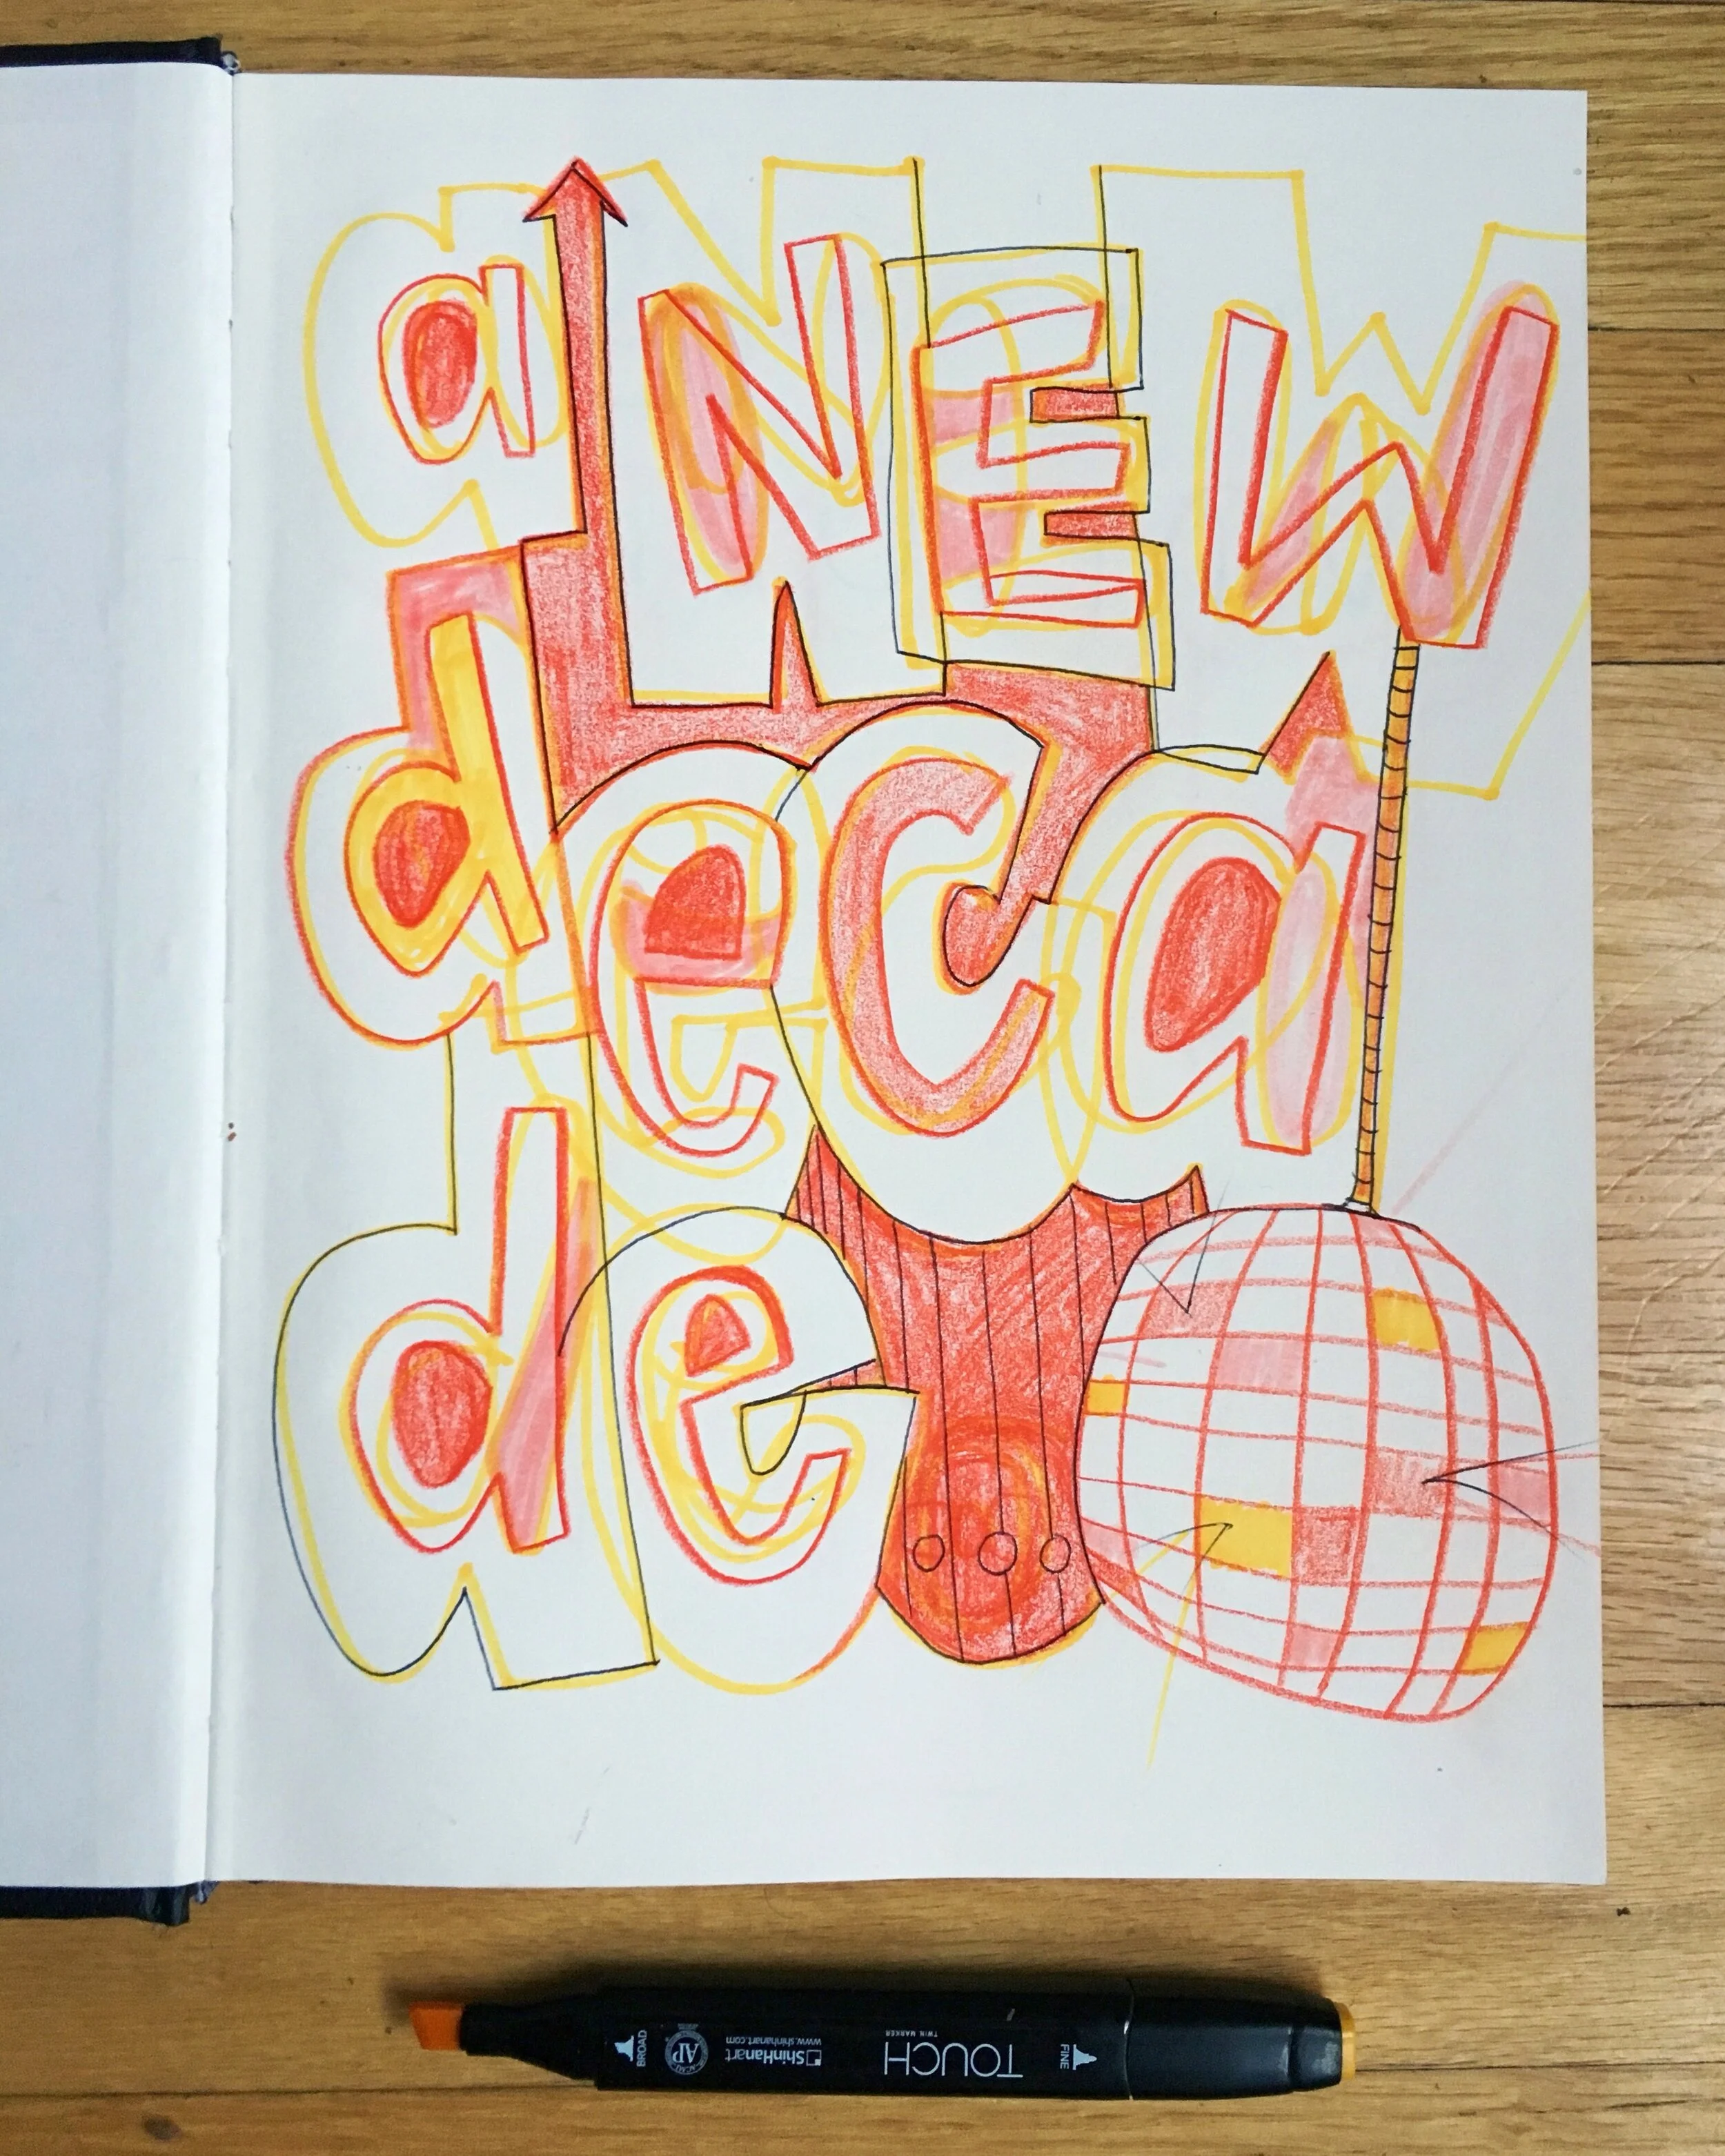 a NEW
deca
de
BROAD
AP
ShinHanart
www.shinhanart.com
TOUCH
TWIN MARKER
FINE